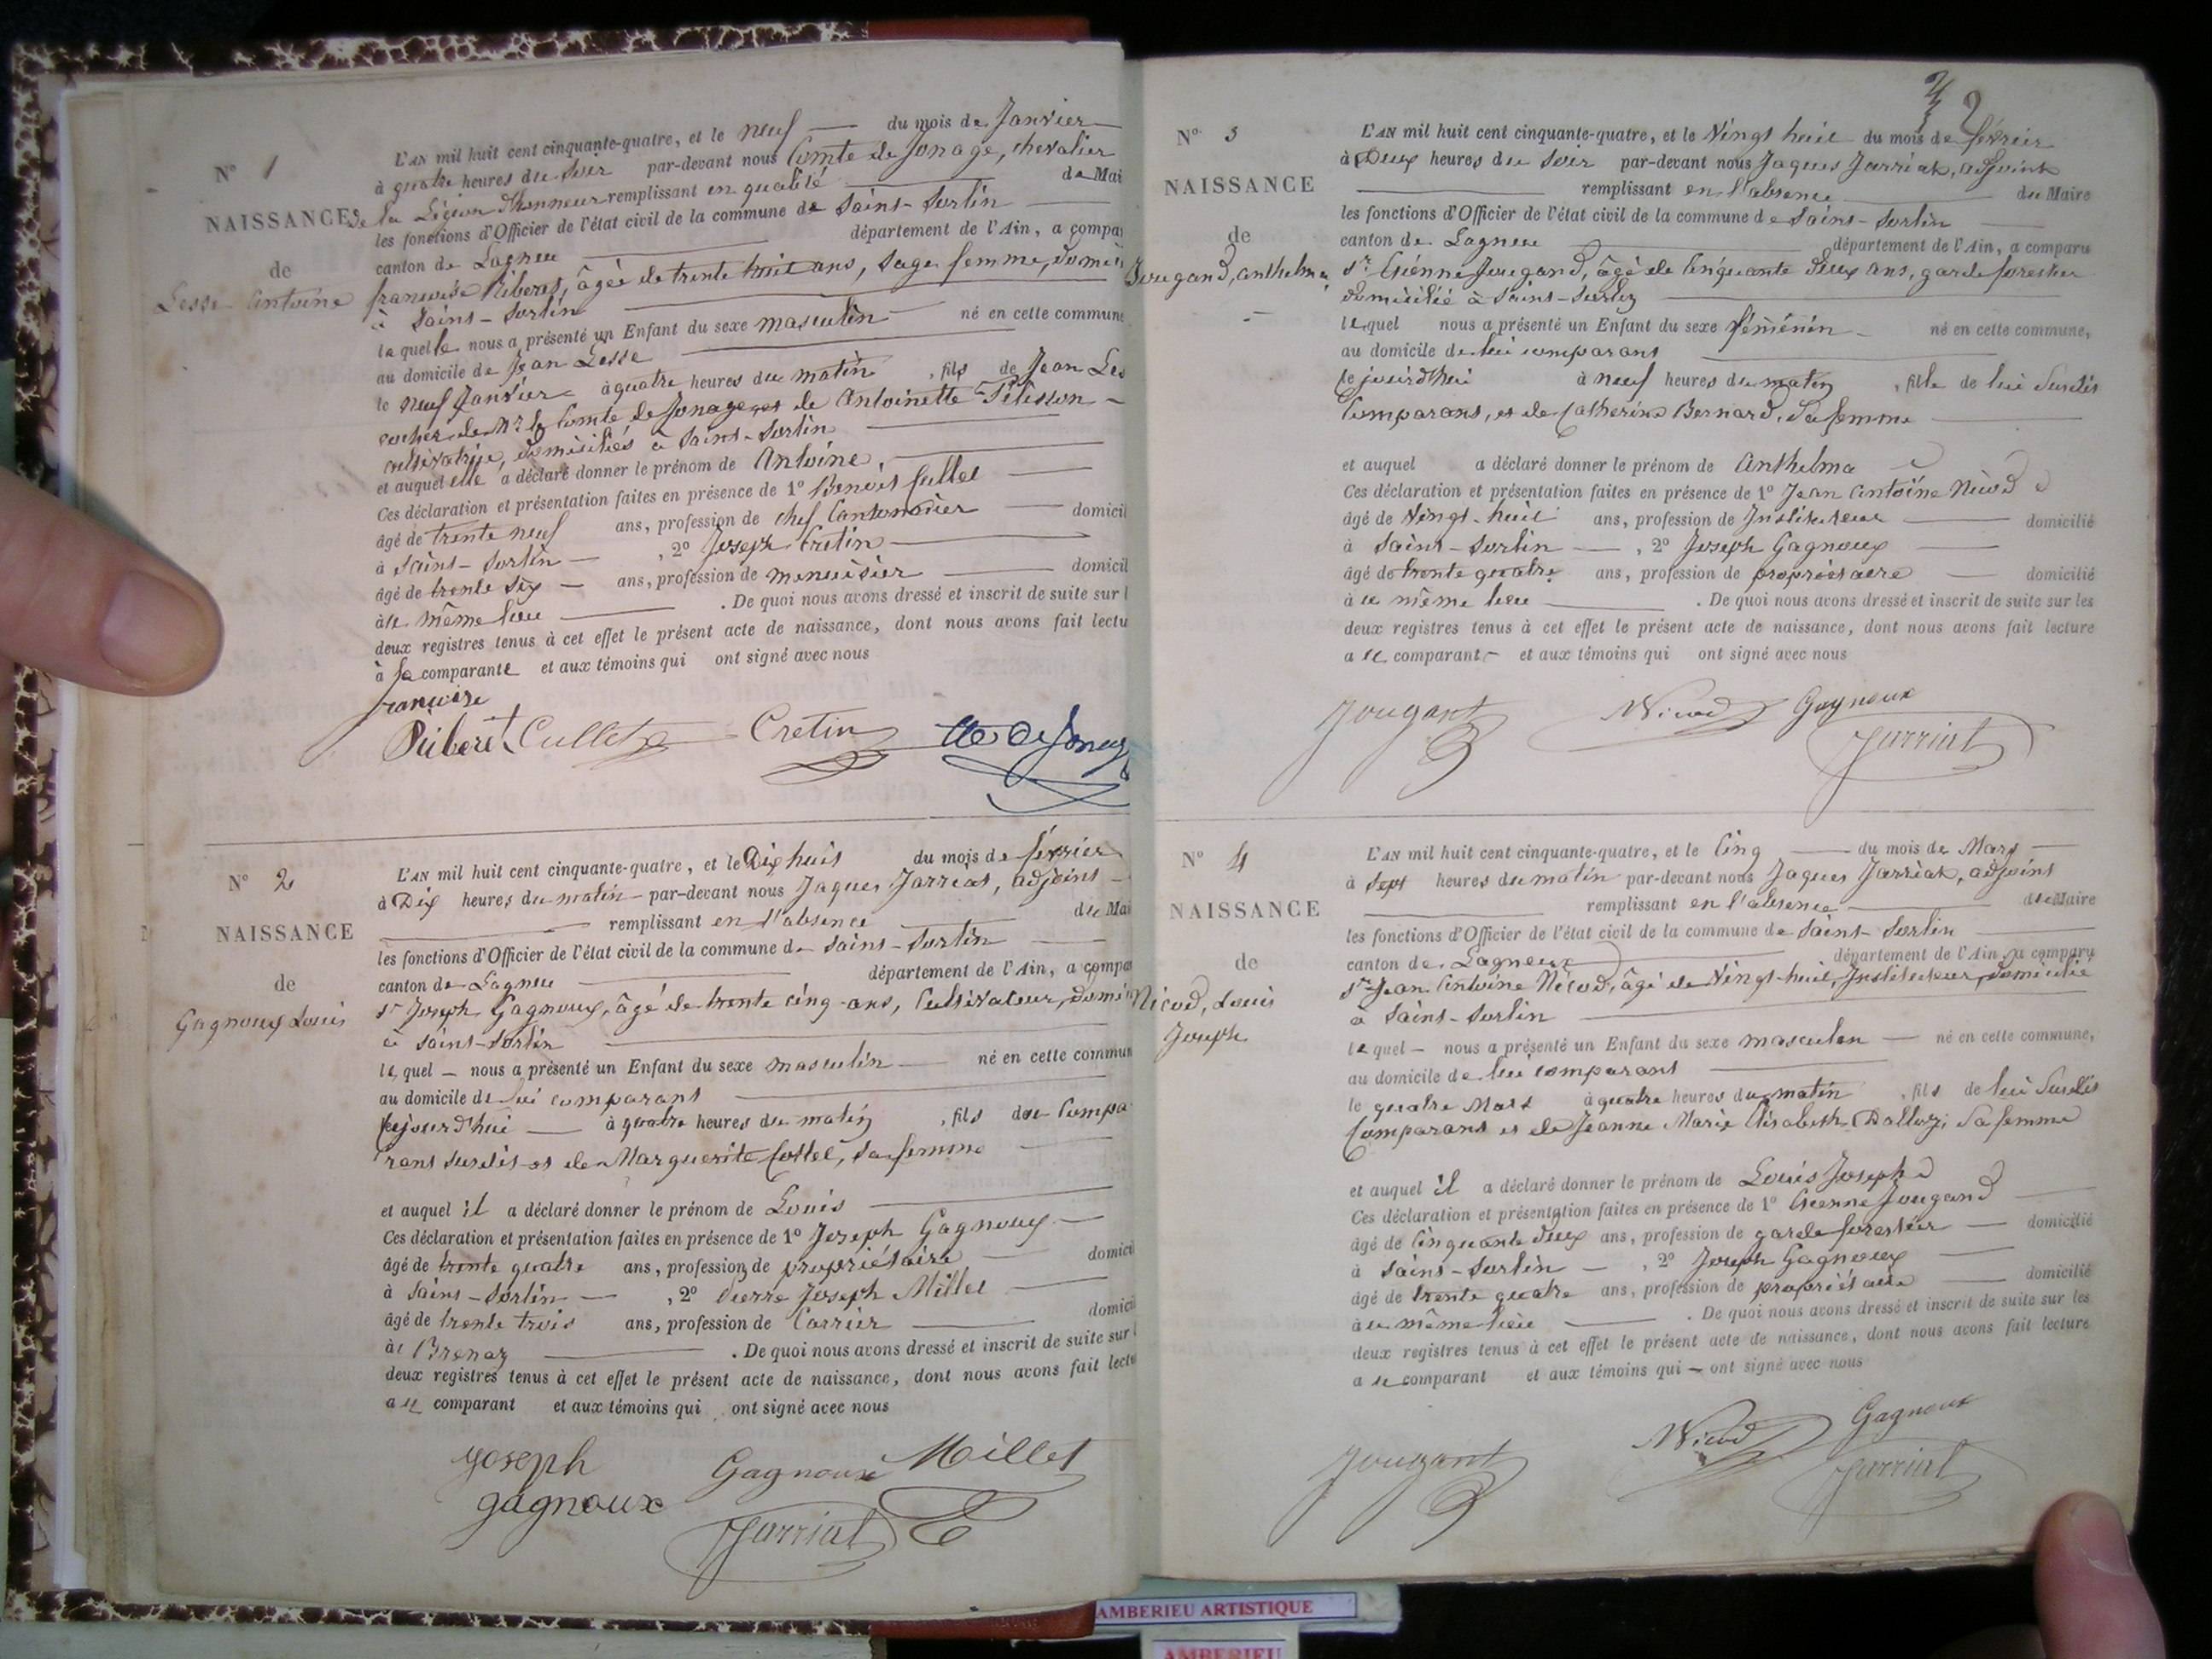 N° 1
NAISSANCE
de
Lesse Antoine
L'AN mil huit cent cinquante-quatre, et le neuf du mois de Janvier
à quatre heures du soir par-devant nous Comte de Jonage, chevalier
de la Légion d'honneur remplissant en qualité de Mai
les fonctions d'Officier de l'état civil de la commune de Saint-Sorlin
canton de Lagnieu département de l'Ain, a compa
françoise Riberet, âgée de trente huit ans, sage femme, domi
à Saint-Sorlin
laquelle nous a présenté un Enfant du sexe masculin né en cette commune
au domicile de Jean Lesse
le neuf Janvier à quatre heures du matin, fils de Jean Les
cocher de Mr le Comte de Jonage et de Antoinette Pélisson
cultivatrice, domiciliés à Saint-Sorlin
et auquel elle a déclaré donner le prénom de Antoine,
Ces déclaration et présentation faites en présence de 1° Benoit Cullet
âgé de trente neuf ans, profession de chef Cantonnier domicil
à Saint-Sorlin, 2° Joseph Cretin
âgé de trente six ans, profession de menuisier domicil
à le même lieu. De quoi nous avons dressé et inscrit de suite sur l
deux registres tenus à cet effet le présent acte de naissance, dont nous avons fait lectu
à la comparante et aux témoins qui ont signé avec nous
françoise
Riberet Cullet Cretin Cte de Jonag
N° 2
NAISSANCE
de
Gagnoux Louis
L'AN mil huit cent cinquante-quatre, et le Dix huit du mois de février
à Dix heures du matin par-devant nous Jaques Jarriat, adjoint
remplissant en l'absence du Mai
les fonctions d'Officier de l'état civil de la commune de Saint-Sorlin
canton de Lagnieu département de l'Ain, a compa
Sr Joseph Gagnoux, âgé de trente cinq ans, Cultivateur, domi
à Saint-Sorlin
lequel nous a présenté un Enfant du sexe masculin né en cette commun
au domicile de lui comparant
cejourd'hui à quatre heures du matin, fils du Compa
rant susdit et de Marguerite Cottet, sa femme
et auquel il a déclaré donner le prénom de Louis
Ces déclaration et présentation faites en présence de 1° Joseph Gagnoux
âgé de trente quatre ans, profession de propriétaire domici
à Saint-Sorlin, 2° Pierre Joseph Millet
âgé de trente trois ans, profession de Carrier domici
à Brenaz. De quoi nous avons dressé et inscrit de suite sur l
deux registres tenus à cet effet le présent acte de naissance, dont nous avons fait lectu
a le comparant et aux témoins qui ont signé avec nous
joseph Gagnoux Millet
gagnoux Jarriat
2
N° 3
NAISSANCE
de
Jougand, Anthelma
L'AN mil huit cent cinquante-quatre, et le Vingt huit du mois de février
à Deux heures du soir par-devant nous Jaques Jarriat, adjoint
remplissant en l'absence du Maire
les fonctions d'Officier de l'état civil de la commune de Saint-Sorlin
canton de Lagnieu département de l'Ain, a comparu
Sr Etiénne Jougand, âgé de Cinquante deux ans, garde forestier
domicilié à Saint-Sorlin
lequel nous a présenté un Enfant du sexe féminin né en cette commune,
au domicile de lui comparant
cejourd'hui à neuf heures du matin, fille de lui Susdit
Comparant, et de Catherine Bernard, Sa femme
et auquel a déclaré donner le prénom de Anthelma
Ces déclaration et présentation faites en présence de 1° Jean Antoine Nicod
âgé de Vingt-huit ans, profession de Instituteur domicilié
à Saint-Sorlin, 2° Joseph Gagnoux
âgé de trente quatre ans, profession de propriétaire domicilié
à le même lieu. De quoi nous avons dressé et inscrit de suite sur les
deux registres tenus à cet effet le présent acte de naissance, dont nous avons fait lecture
a le comparant et aux témoins qui ont signé avec nous
Jougant Nicod Gagnoux
Jarriat
N° 4
NAISSANCE
de
Nicod, Louis
Joseph
L'AN mil huit cent cinquante-quatre, et le Cinq du mois de Mars
à Sept heures du matin par-devant nous Jaques Jarriat, adjoint
remplissant en l'absence du Maire
les fonctions d'Officier de l'état civil de la commune de Saint-Sorlin
canton de Lagneux département de l'Ain, a comparu
Sr Jean Antoine Nicod, âgé de Vingt-huit, Instituteur, domicilié
à Saint-Sorlin
lequel nous a présenté un Enfant du sexe masculin né en cette commune,
au domicile de lui comparant
le quatre Mars à quatre heures du matin, fils de lui Susdit
Comparant et de Jeanne Marie Elisabeth Dalloz, Sa femme
et auquel il a déclaré donner le prénom de Louis Joseph
Ces déclaration et présentation faites en présence de 1° Etienne Jougand
âgé de Cinquante deux ans, profession de garde forestier domicilié
à Saint-Sorlin, 2° Joseph Gagnoux
âgé de trente quatre ans, profession de propriétaire domicilié
à le même lieu. De quoi nous avons dressé et inscrit de suite sur les
deux registres tenus à cet effet le présent acte de naissance, dont nous avons fait lecture
a le comparant et aux témoins qui ont signé avec nous
Jougant Nicod Gagnoux
Jarriat
AMBERIEU ARTISTIQUE
AMBERIEU